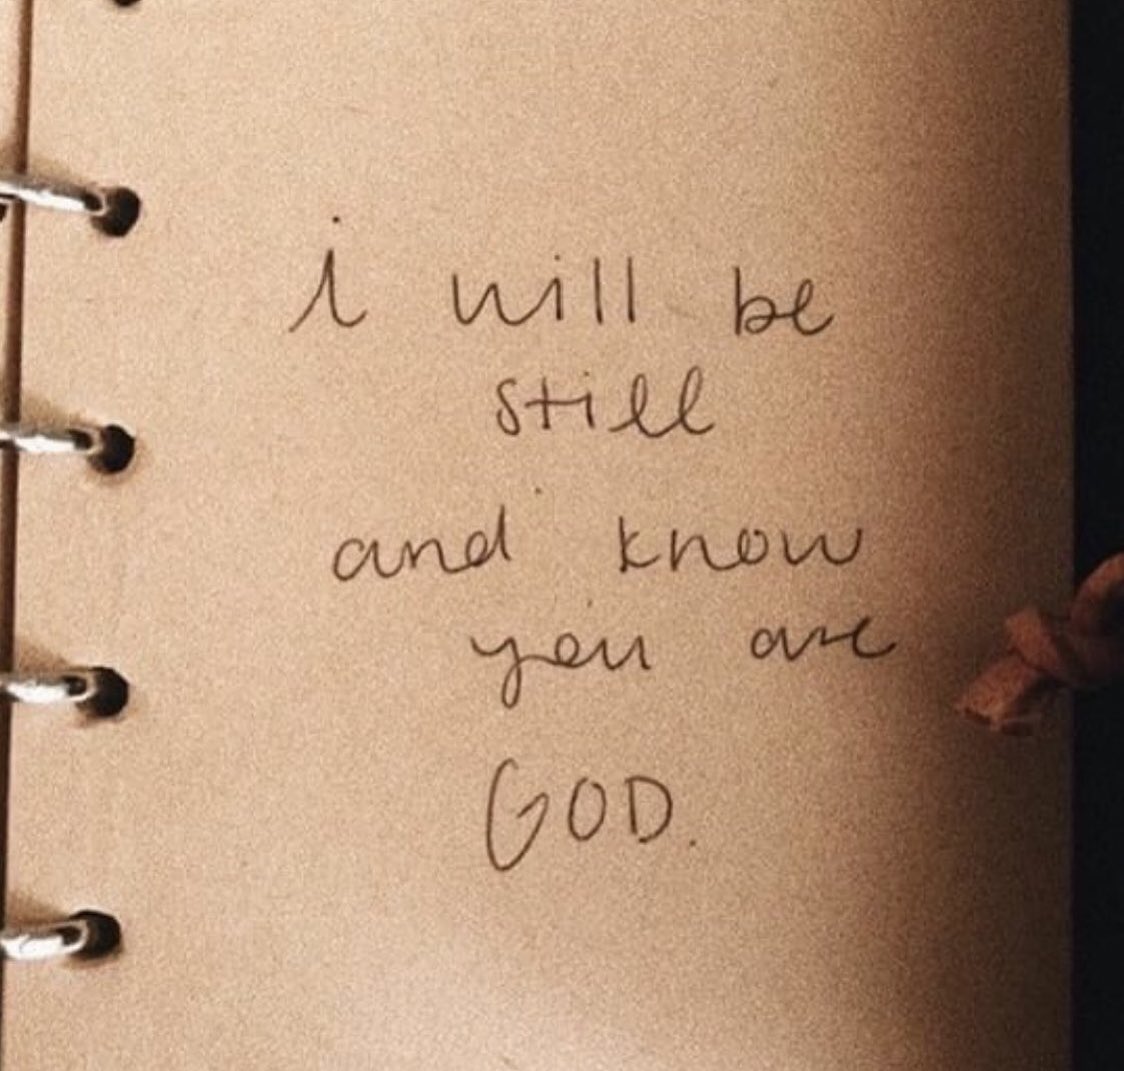 i will be
still
and know
you are
GOD.